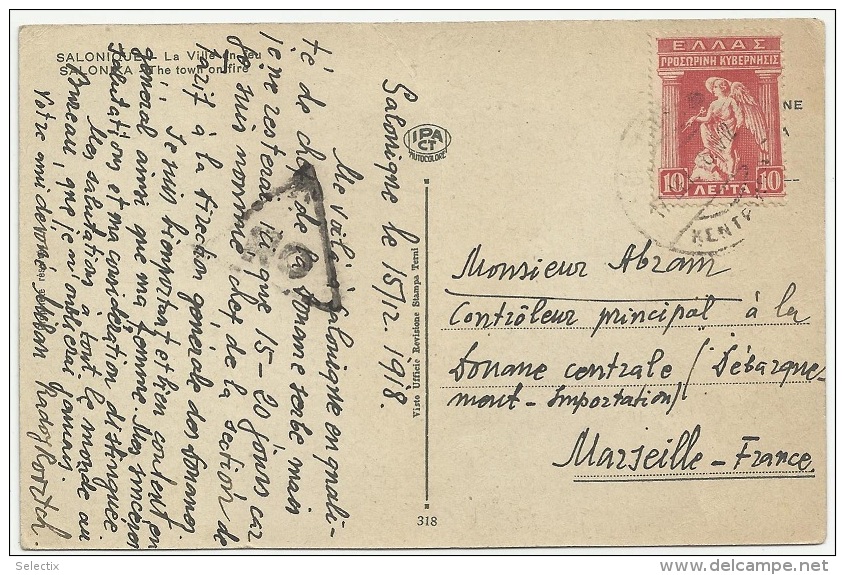 SALONIQUE - La Ville en feu
SALONICA - The town on fire
Salonique le 15/2. 1918.
Me voilà à Salonique en quali-
té de chef de la Douane serbe, mais
je ne resterai ici que 15-20 jours car
je suis nommé chef de la section de
tarif à la direction générale des Douanes
Je suis bien portant et bien content en
général ainsi que ma femme. Mes sincères
salutations et ma considération distinguée
Mes salutations à tout le monde au
Bureau, que je n'oublierai jamais.
Votre ami dévoué
IPA
CT
AUTOCOLORE
Visto Ufficio Revisione Stampa Terni
318
ΕΛΛΑΣ
ΠΡΟΣΩΡΙΝΗ ΚΥΒΕΡΝΗΣΙΣ
10 ΛΕΠΤΑ 10
ΚΕΝΤΡ
NE
Monsieur Abram
Contrôleur principal à la
Douane centrale (Débarque-
ment - Importation)
Marseille - France
Selectix
delcampe.net